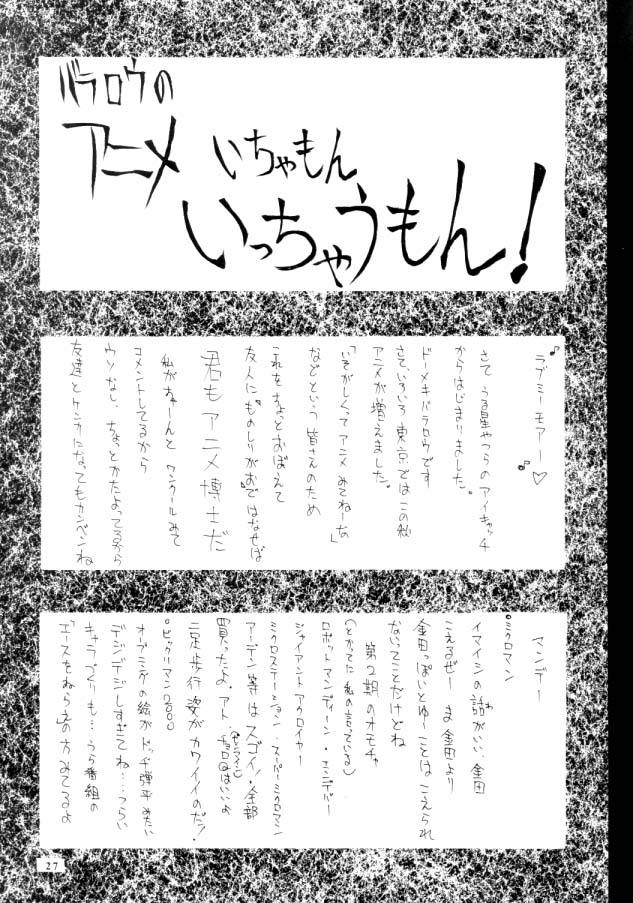 バラロウの
アニメ いちゃもん
いっちゃうもん!
♪ラブミーモアー♪♡
さて うる星やつらのアイキャッチ
からはじまりました。
ドーメキバラロウです
さて、いろいろ東京ではこの秋
アニメが増えました。
「いそがしくってアニメみてねーな」
などという皆さんのため
これをちょとおぼえて
友人に"ものしりがお"ではなせば
君もアニメ博士だ
私がちゃーんとワンクールみて
コメントしてるから
ウソなし、ちょっとかたよってるから
友達とケンカになってもカンベンね
マンデー
°ミクロマン
イマイシの話がいい、金田
こえるぜー ま金田より
金田っぽいとゆーことはこえられ
ないってことだけどね
第2期のオモチャ
(とかってに私の言っている)
ロボットマンディーン・エンデバー
ジャイアントアクロイヤー
ミクロステーション・スーパーミクロマン
アーデン等はスゴイゾ・全部
買ったよ。アト チョロQはいいよ
二足歩行姿がカワイイのだ!
°ビックリマン2000
オープニングの絵がドッヂ弾平みたい
デジデジしすぎてね…つらい
キャラづくりも…うら番組の
「エースをねらえ」の方みてるよ
27